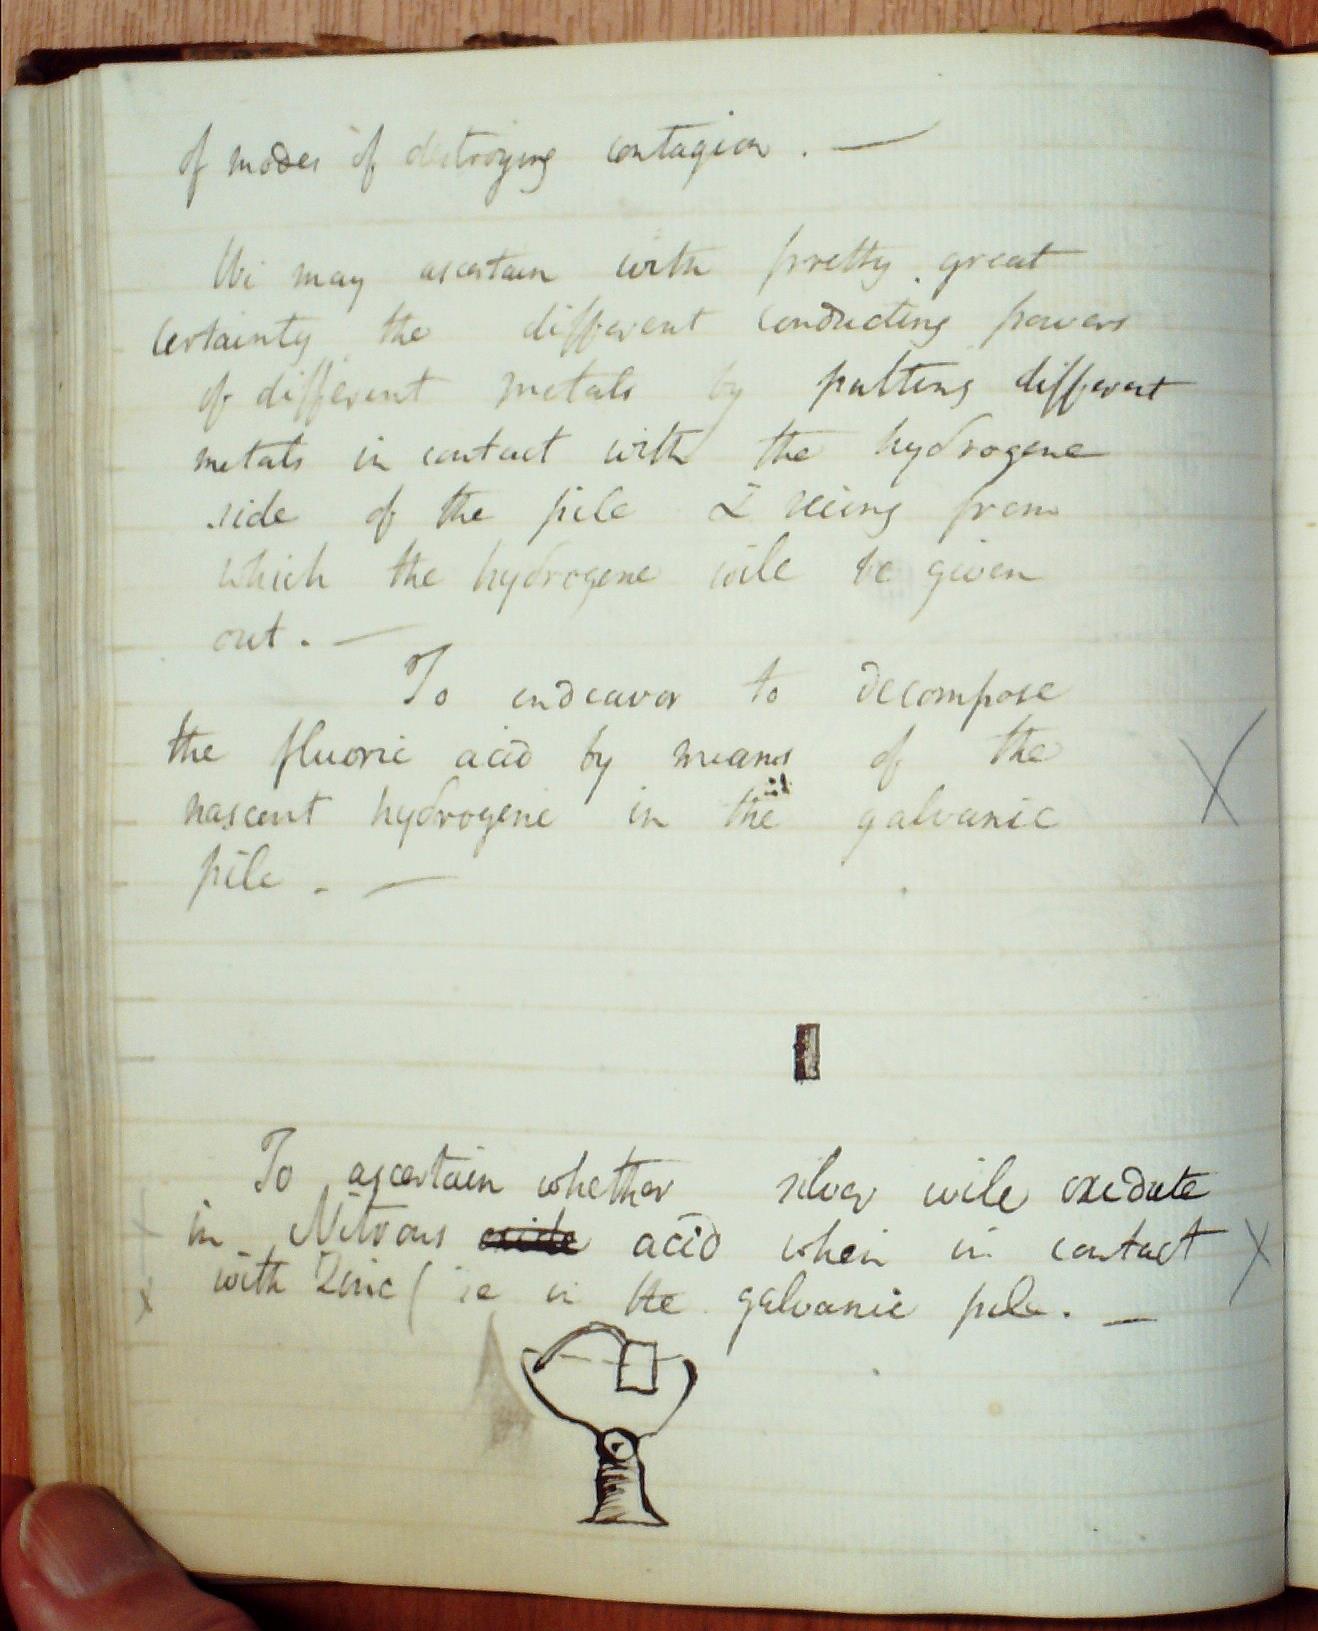 of modes of destroying contagion . —
We may ascertain with pretty great
certainty the different conducting powers
of different metals by putting different
metals in contact with the hydrogene
side of the pile & seeing from
which the hydrogene will be given
out . —
To endeavor to decompose
the fluoric acid by means of the
nascent hydrogene in the galvanic
pile . —
To ascertain whether silver will oxidate
in Nitrous oxide acid when in contact
with Zinc ( ie in the galvanic pile . —